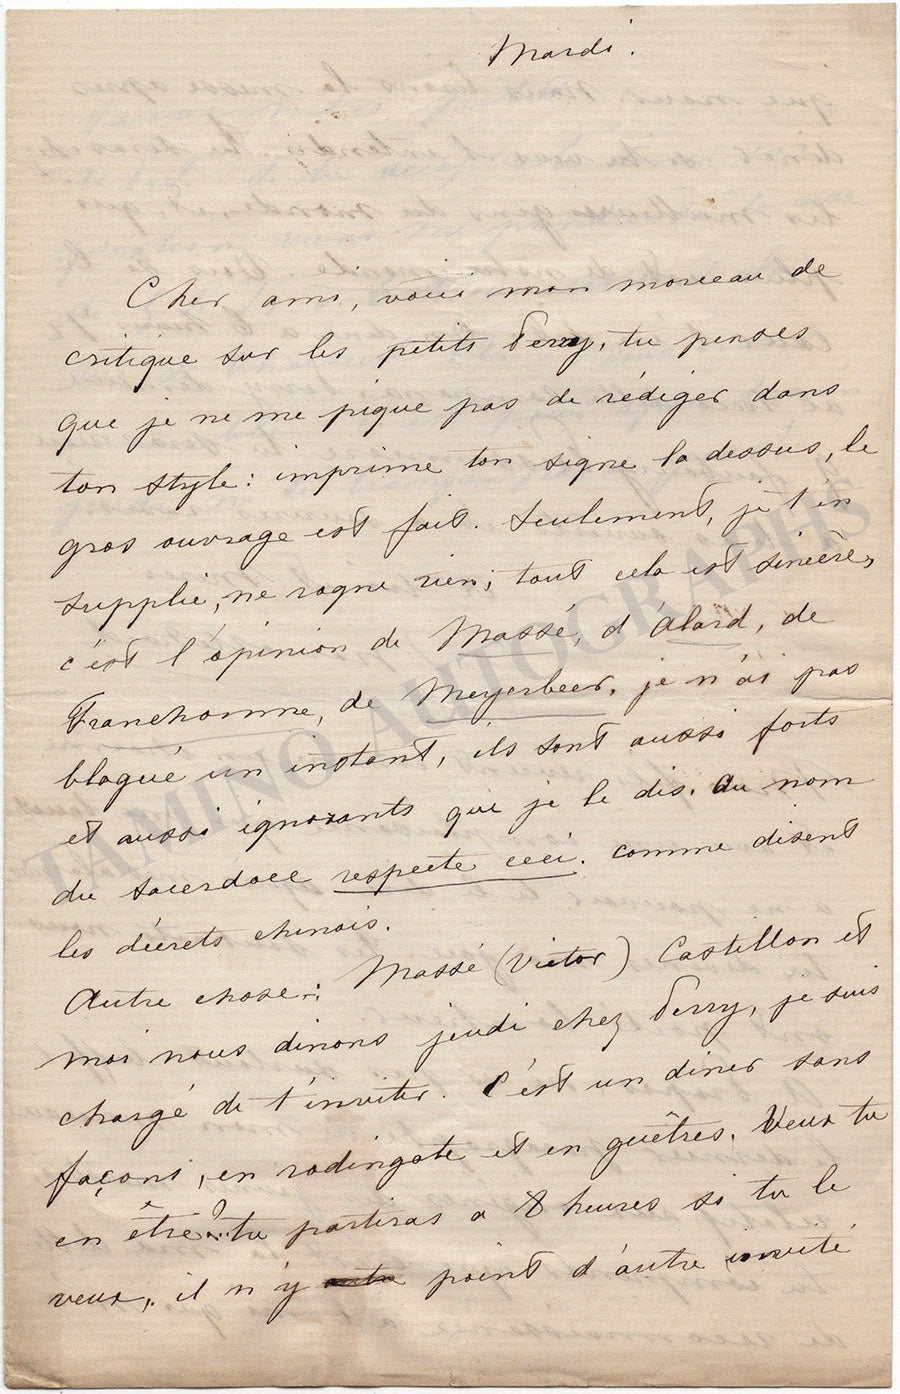 Mardi.
Cher ami, voici mon morceau de
critique sur les petits Ferry, tu penses
que je ne me pique pas de rédiger dans
ton style : imprime ton signe la dessus, le
gros ouvrage est fait. Seulement, je t'en
supplie, ne rogne rien ; tout cela est sincère,
c'est l'opinion de Massé, d'Alard, de
Franchomme, de Meyerbeer. je n'ai pas
blagué un instant, ils sont aussi forts
et aussi ignorants que je le dis. Au nom
du sacerdoce respecte ceci. comme disent
les décrets chinois.
Autre chose : Massé (Victor) Castillon et
moi nous dinons jeudi chez Ferry, je suis
chargé de t'inviter. C'est un diner sans
façons, en redingote et en guêtres. Veux tu
en être ?.. tu partiras a 8 heures si tu le
veux, il n'y point d'autre invité
TAMINO AUTOGRAPHS